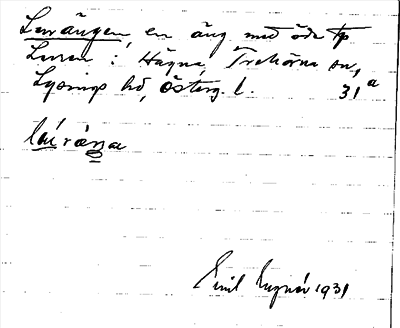 Lurängen, en äng med öde tp
Luren i Hägna, Trehörna sn,
Lysings hd, Österg. l. 31ª
luræŋa
Emil Lugnér 1931